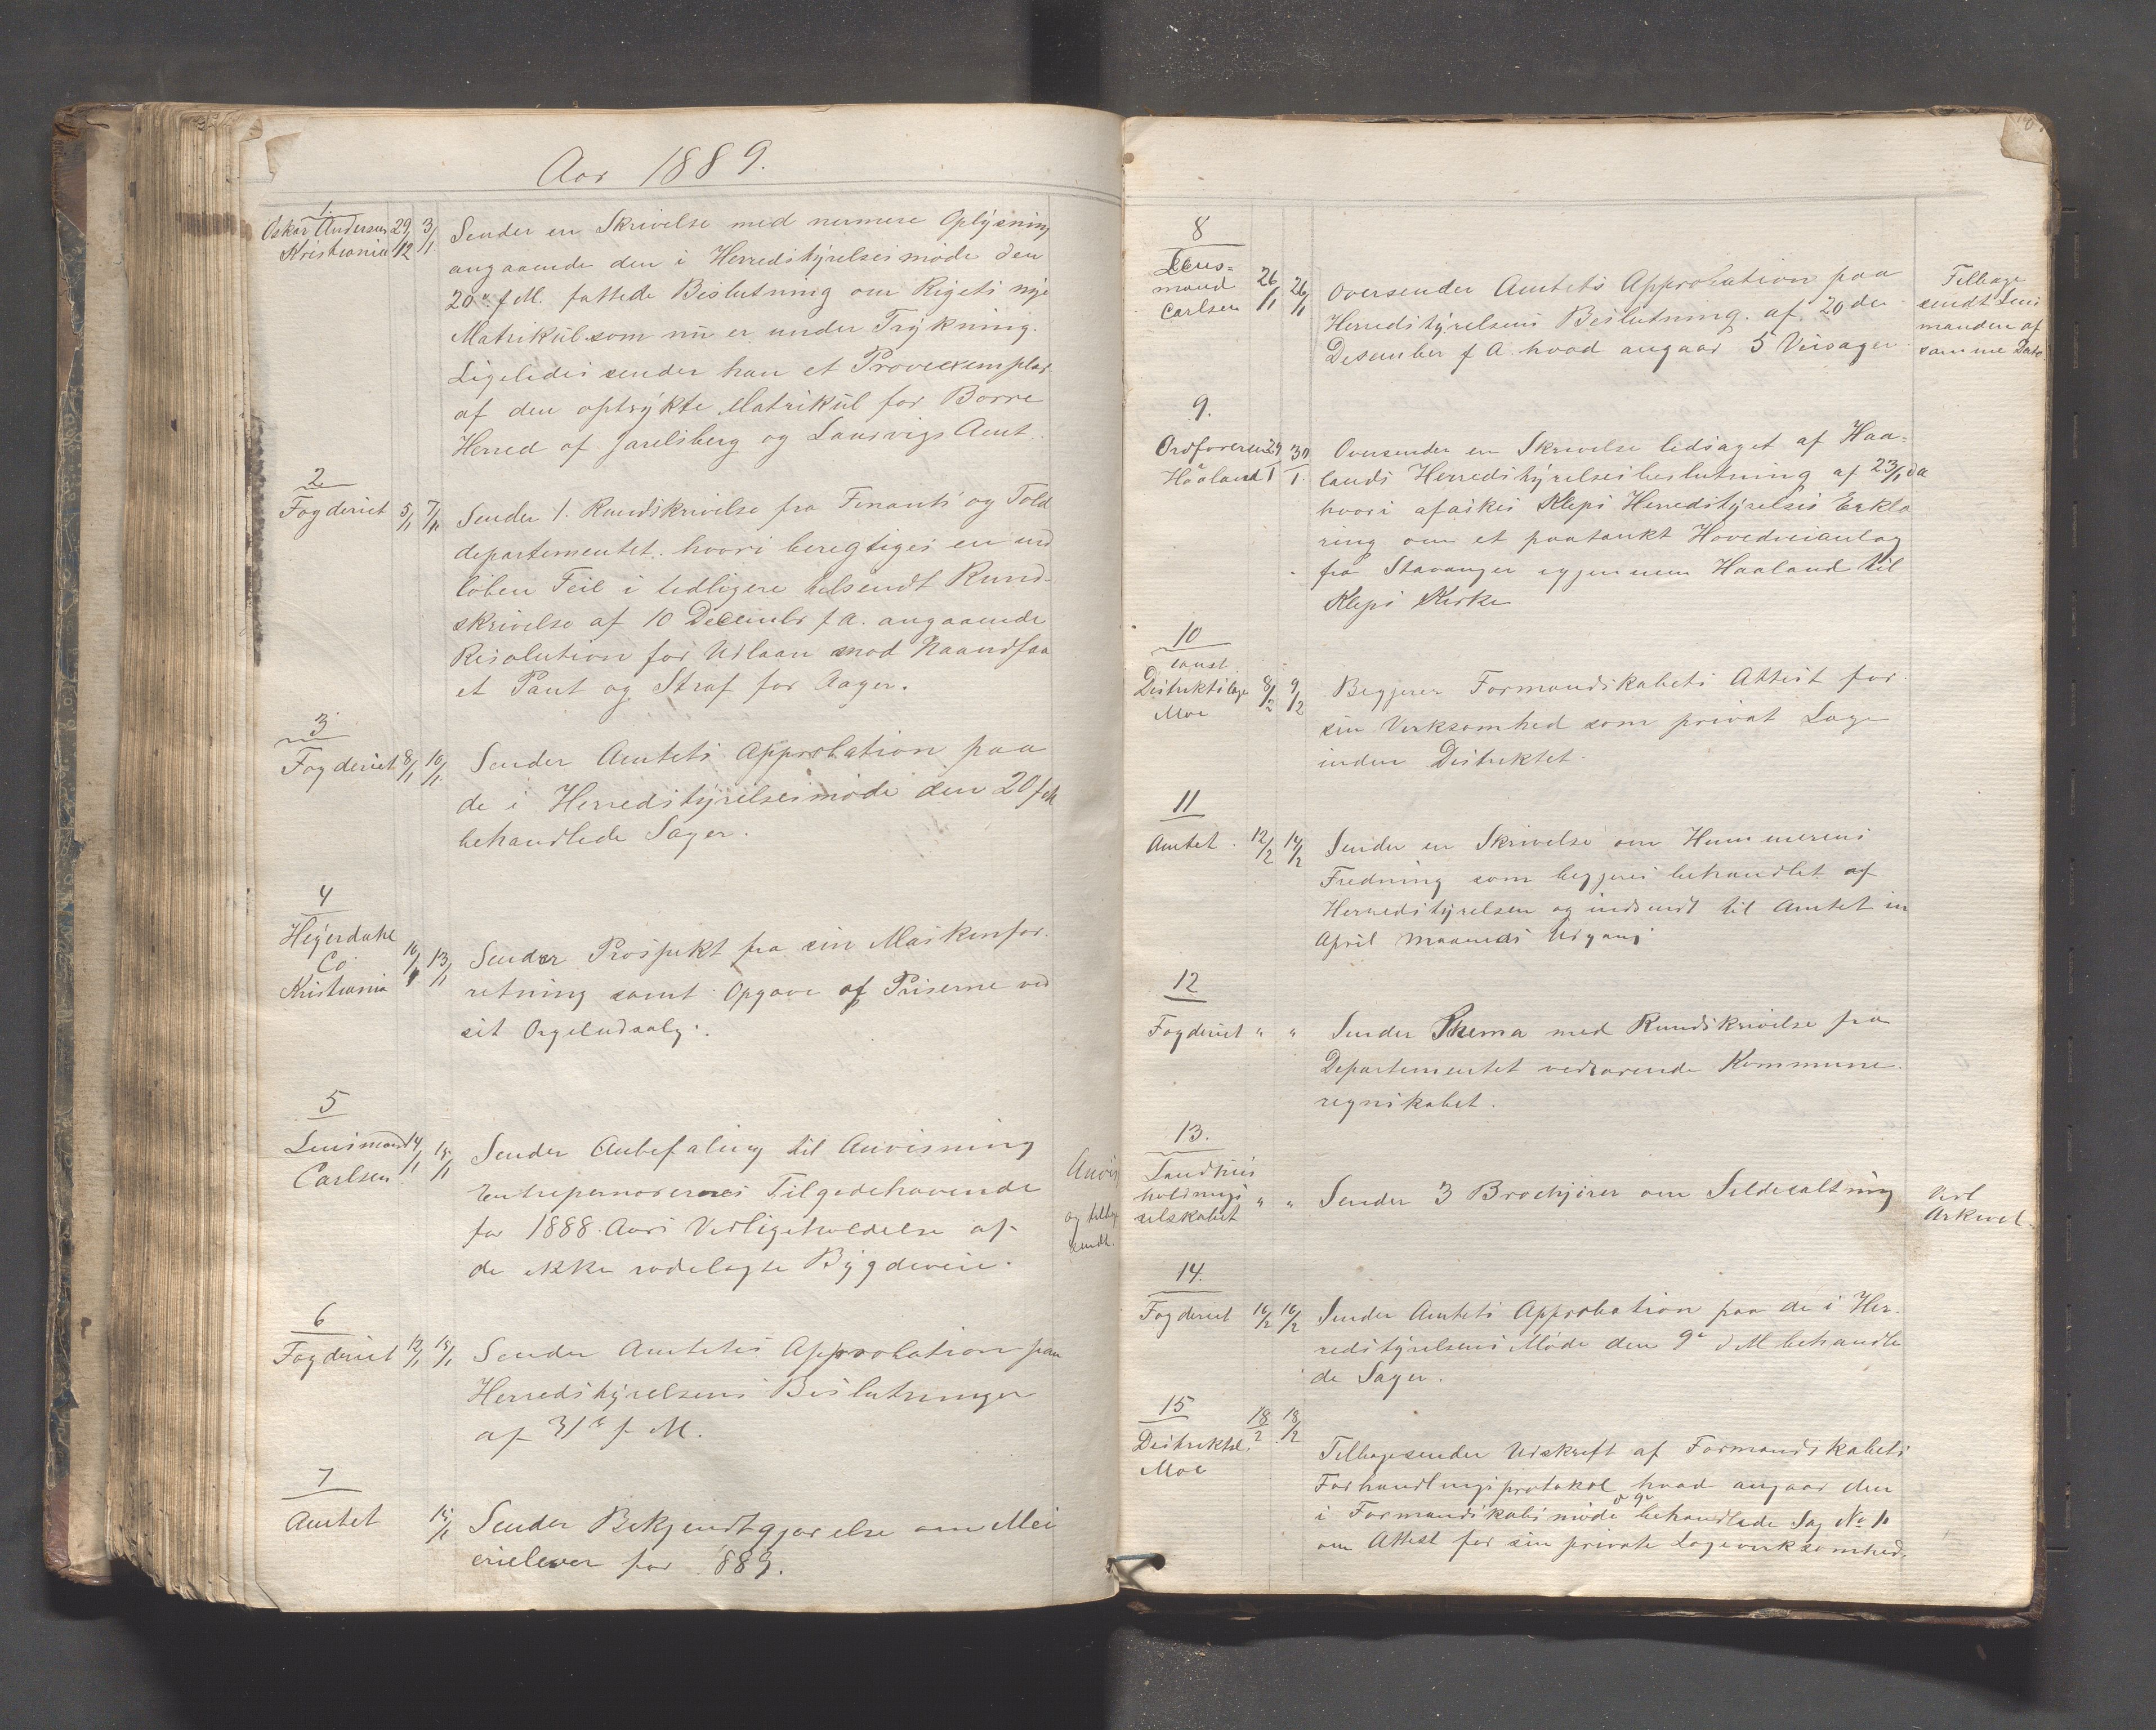 Aar 1889.
1.
Oskar Andersen 29/12 3/1 Sender en Skrivelse med nermere Oplysning
Kristiania
angaaende den i Herredstyrelsesmøde den
20de f M. fattede Beslutning om Rigets nye
Matrikul som nu er under Trykning.
Ligeledes sender han et Provexemplar
af den optrykte Matrikul for Borre
Herred af Jarlsberg og Laurvigs Amt.
2
Fogderiet 5/1 7/1 Sender 1. Rundskrivelse fra Finants og Told
departementet. hvori beregtiges en ind
løben Feil i tidligere tilsendt Rund-
skrivelse af 10 December f A. angaaende
Resolution for Udlaan mod Haandfaa
et Pant og Straf for Aager.
3
Fogderiet 8/1 10/1 Sender Amtets Approbation paa
de i Herredstyrelsesmøde den 20 f M
behandlede Sager.
4
Heyerdahl
Co
Kristiania 10/1 13/1 Sender Prospekt fra sin Maskinfor-
retning samt Opgave af Priserne ved
sit Orgeludsalg.
5
Lensmand 14/1 15/1 Sender Anbefaling til Anvisning
Carlsen
Entrepenørernes Tilgodehavende
for 1888 Aars Vedligeholdelse af
de ikke rodelagte Bygdeveie.
Anvis
og tilbage
sendt.
6
Fogderiet 12/1 15/1 Sender Amtets Approbation paa
Herredstyrelsens Beslutninger
af 31te f M.
7
Amtet 15/1 Sender Bekjendtgjørelse om Mei
erielever for 1889.
8
Lens-
mand
Carlsen 26/1 26/1 Oversender Amtets Approbation paa
Herredstyrelsens Beslutning af 20de
Desember f A. hvad angaar 5 Veisager
Tilbage
sendt Lens
manden af
samme Dato.
9.
Ordføreren 29/1 30/1 Oversender en Skrivelse ledsaget af Haa-
Håaland
lands Herredstyrelsesbeslutning af 23/1 d A
hvori afæskes Kleps Herredstyrelses Erklæ
ring om et paatænkt Hovedveianlæg
fra Stavanger igjennem Haaland til
Kleps Kirke
10
const.
Distriktslæge 8/2 9/2 Begjerer Formandskabets Attest for
Moe
sin Virksomhed som privat Læge
inden Distriktet.
11
Amtet. 12/2 14/2 Sender en Skrivelse om Hummerens
Fredning som begjeres behandlet af
Herredstyrelsen og indsendt til Amtet in
April Maaneds Udgang
12
Fogderiet " " Sender Skema med Rundskrivelse fra
Departementet vedrørende Kommune
regnskabet.
13.
Landhus
holdnings
selskabet " " Sender 3 Brochjører om Sildesaltning
Ved
Arkivet.
14.
Fogderiet 16/2 16/2 Sender Amtets Approbation paa de i Her-
redstyrelsens Møde den 9de d M behandle
de Sager.
15
Distriktsl. 18/2 18/2
Moe
Tilbagesender Udskrift af Formandskabets
Forhandlingsprotokol hvad angaar den
i Formandskabsmøde d 9de behandlede Sag No 1.
om Attest for sin private Lægevirksomhed.